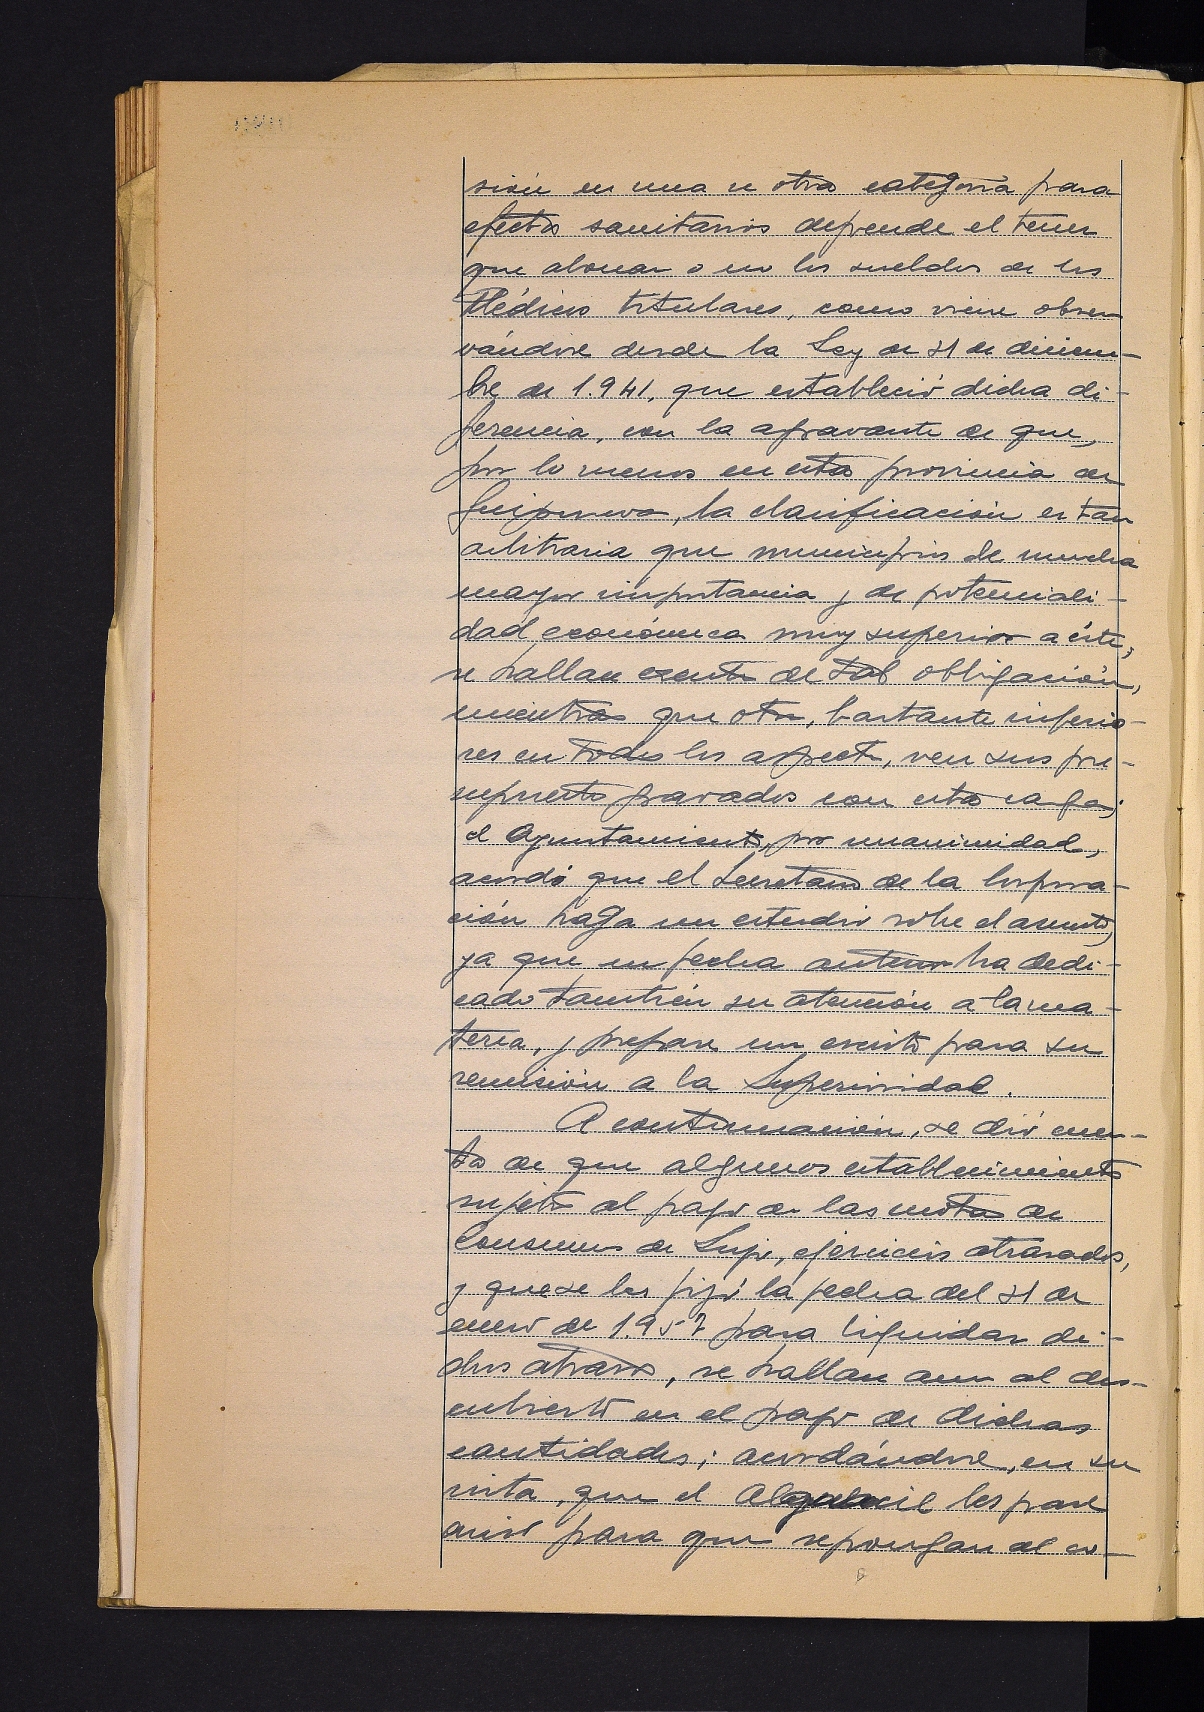 sión en una u otra categoría para
efectos sanitarios depende el tener
que abonar o no los sueldos de los
Médicos titulares, como viene obser
vándose desde la Ley de 31 de diciem-
bre de 1.941, que estableció dicha di-
ferencia, con la agravante de que,
por lo menos en esta provincia de
Guipúzcoa, la clasificación es tan
arbitraria que municipios de mucha
mayor importancia y de potenciali-
dad económica muy superior a éste,
se hallan exentos de tal obligación,
mientras que otros, bastante inferio-
res en todos los aspectos, ven sus pre-
supuestos gravados con esta carga;
el Ayuntamiento, por unanimidad,
acordó que el Secretario de la Corpora-
ción haga un estudio sobre el asunto,
ya que en fecha anterior ha dedi-
cado también su atención a la ma-
teria, y prepare un escrito para su
remisión a la Superioridad.
A continuación, se dió cuen-
ta de que algunos establecimientos
sujetos al pago de las cuotas de
Consumos de Lujo, ejercicios atrasados,
y que se les fijó la fecha del 31 de
enero de 1.957 para liquidar di-
chos atrasos, se hallan aun al des-
cubierto en el pago de dichas
cantidades; acordándose, en su
vista, que el Alguacil les pase
aviso para que se pongan al co-